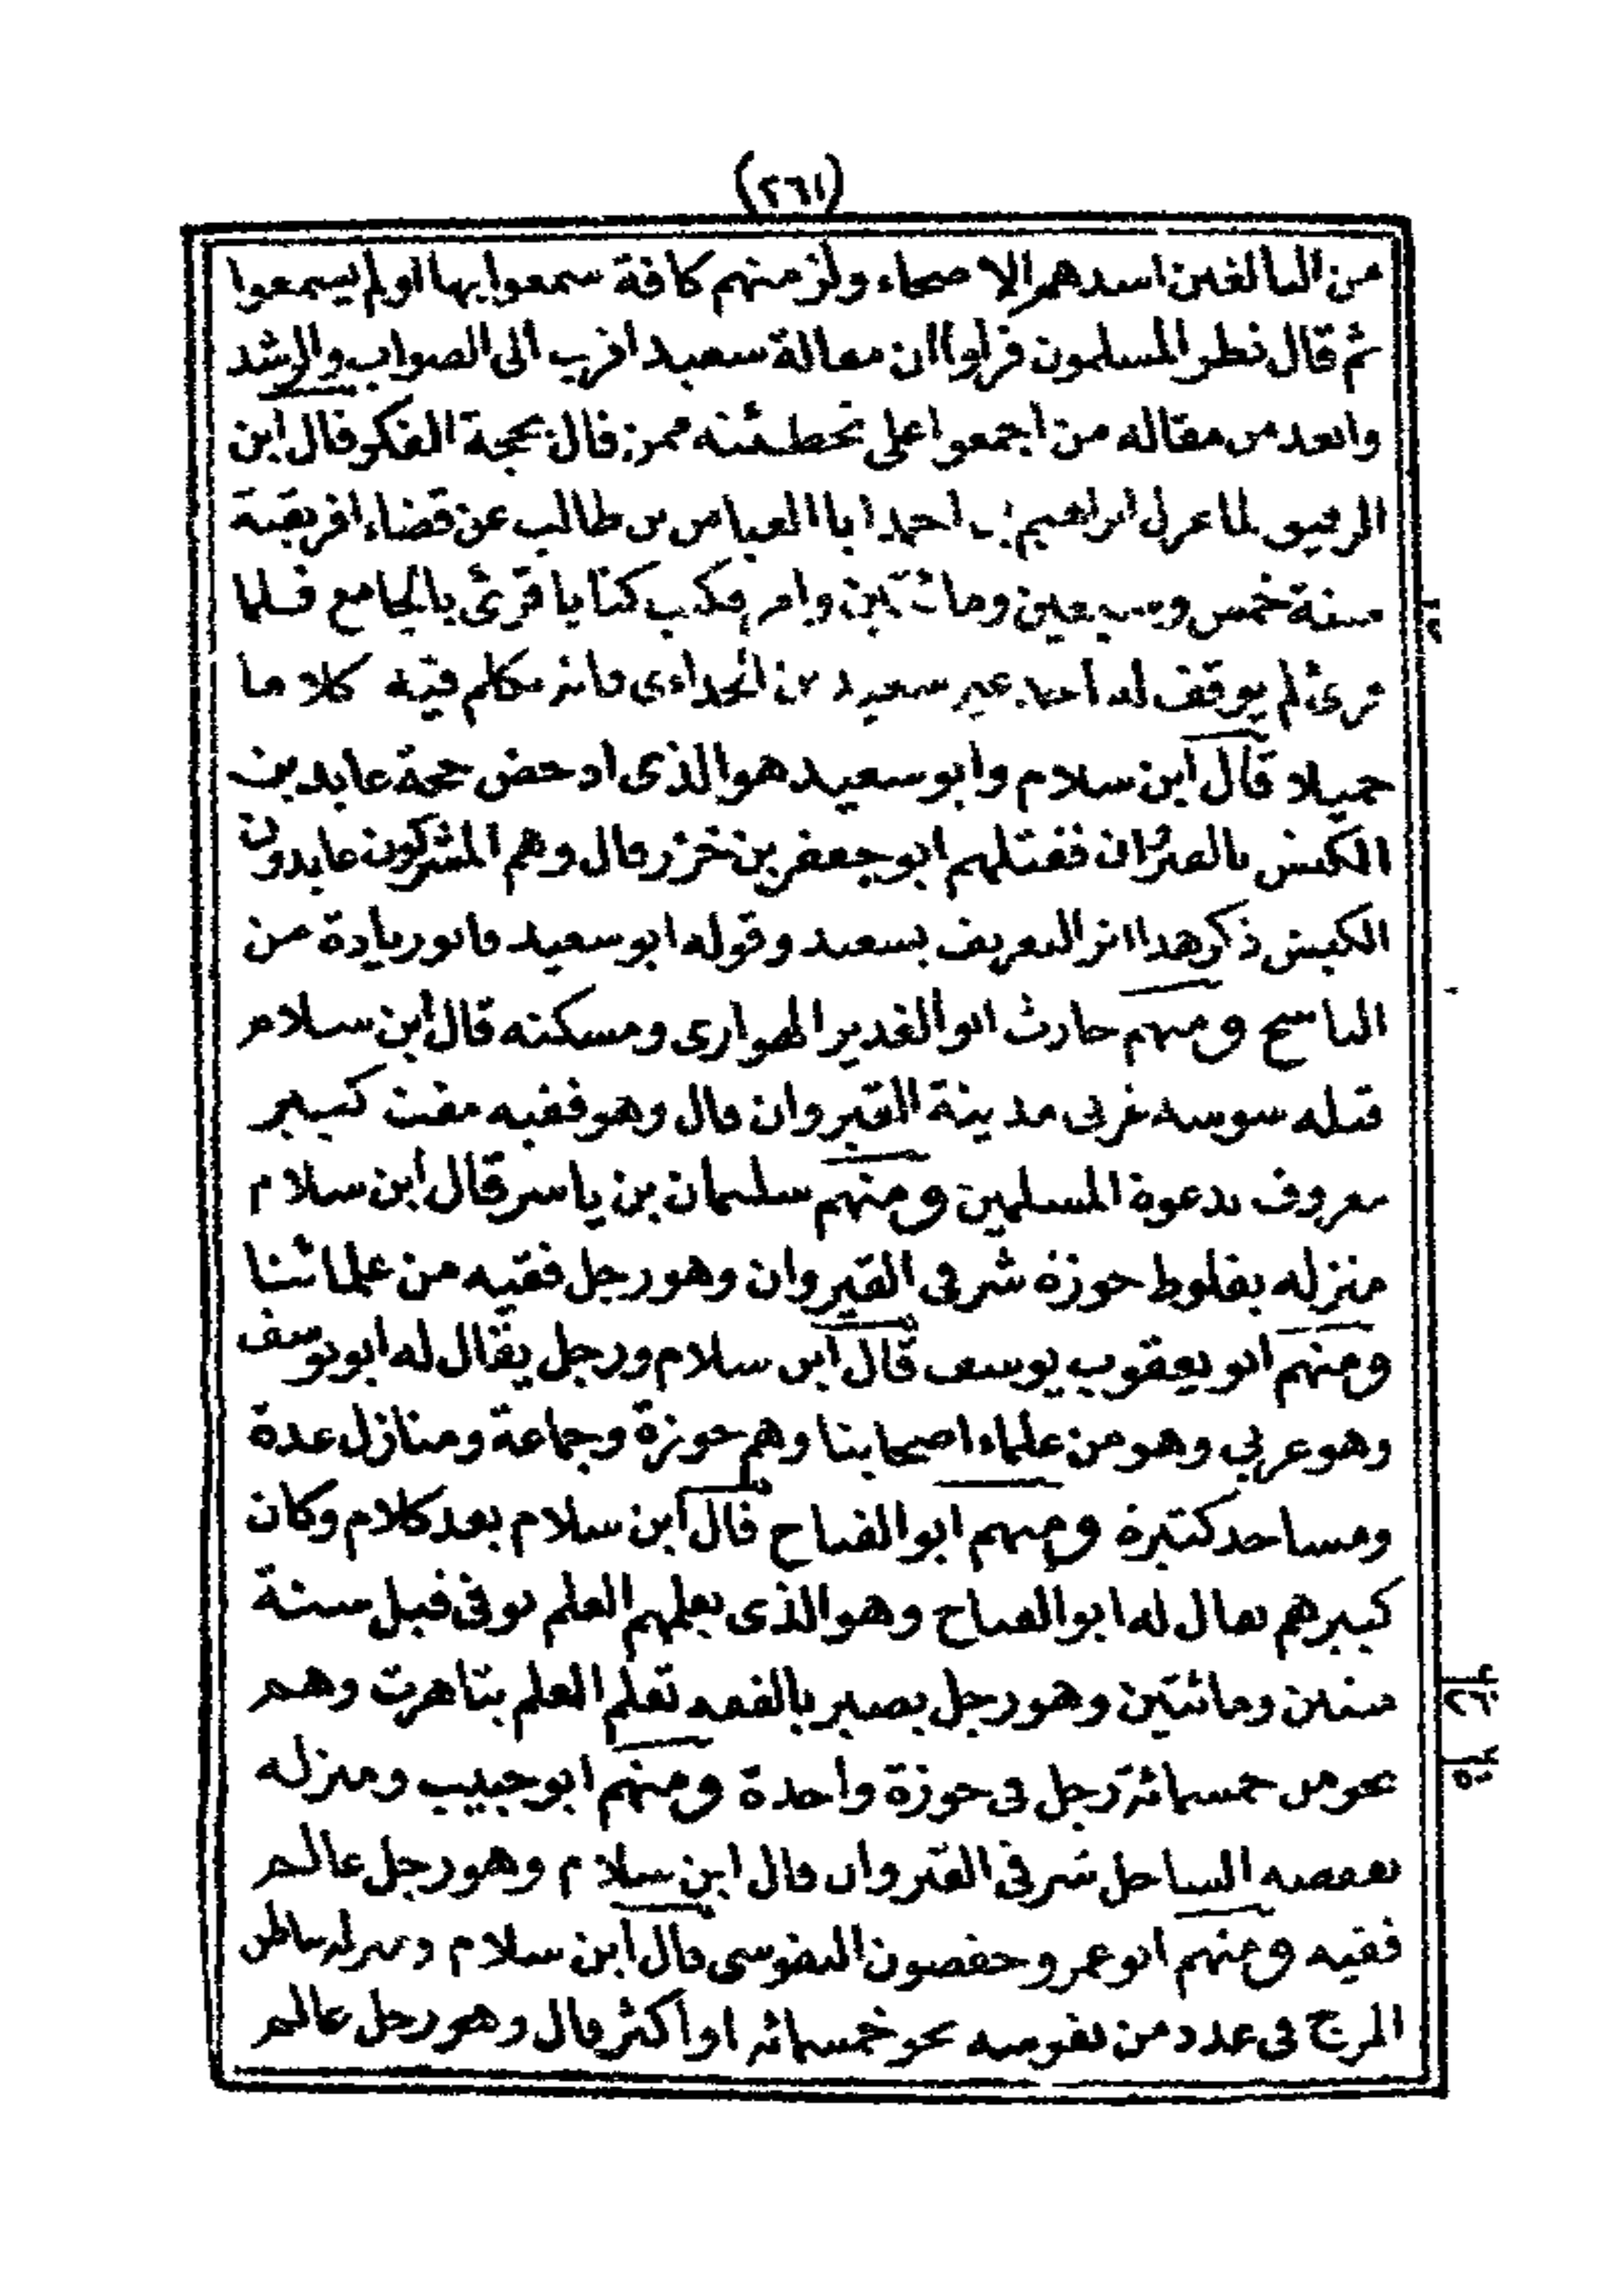 (٢٦١)
من البالغين اسدهم الاصحاء ولزمنهم كافة سمعوا بها اولم يسمعوا
ثم قال نظر المسلمون فراوا ان مقالة سعيد اقرب الى الصواب والرشد
وابعد من مقاله من اجمعوا على تخطئته ممن قال بحجة الفكر قال ابن
الرقيق لما عزل ابراهيم بن احمد ابا العباس بن طالب عن قضاء افريقية
سنة خمس وسبعين ومائتين وامر فكتب كتابا قرئ بالجامع فلما
قرئ لم يوقف له احد غير سعيد بن الحداءى فانه تكلم فيه كلاما
جميلا قال ابن سلام وابو سعيد هو الذى ادحض حجة عابدين
الكبش بالقيروان فقتلهم ابو جعفر بن خزر قال وهم المشركون عابدون
الكبش ذكر هذا اثر التعريف بسعيد وقوله ابو سعيد فابو زيادة من
الناسخ ومنهم حارث ابو الغدير الهوارى ومسكنه قال ابن سلام
قبله سوسه غربى مدينة القيروان قال وهو فقيه مفت كبير
معروف بدعوة المسلمين ومنهم سليمان بن ياسر قال ابن سلام
منزله بقلوط حوزة شرقى القيروان وهو رجل فقيه من علمائنا
ومنهم ابو يعقوب يوسف قال ابن سلام ورجل يقال له ابو يوسف
وهو عربي وهو من علماء اصحابنا وهم حوزة وجماعة ومنازل عدة
ومساجد كثيرة ومنهم ابو الفتاح قال ابن سلام بعد كلام وكان
كبيرهم يقال له ابو الفتاح وهو الذى يعلمهم العلم توفى قبل سنة
ستين ومائتين وهو رجل بصير بالفقه تعلم العلم بتاهرت وهم
نحو من خمسمائة رجل فى حوزة واحدة ومنهم ابو حبيب ومنزله
الساحل شرقى القيروان قال ابن سلام وهو رجل عالم
فقيه ومنهم ابو عمرو حفصون النفوسى قال ابن سلام ومنزله
المرج فى عدد من نفوسه نحو خمسمائه او اكثر قال وهو رجل عالم
٢٦٠